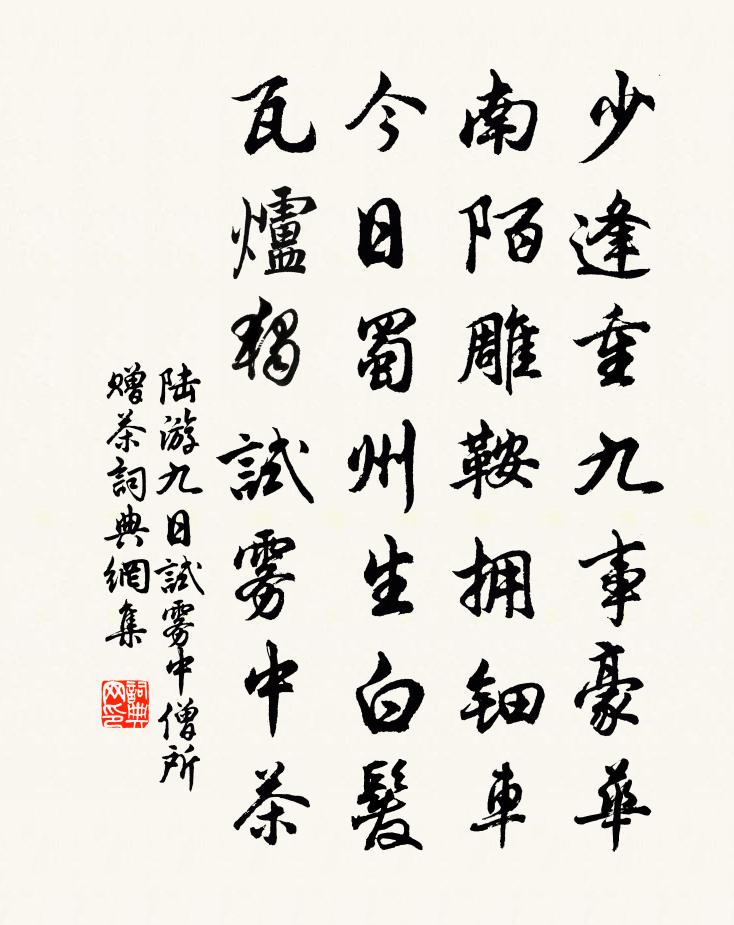 少逢重九事豪華
南陌雕鞍拥鈿車
今日蜀州生白髮
瓦爐獨試雾中茶
陆游九日試雾中僧所
赠茶詞典網集
詞典
网印